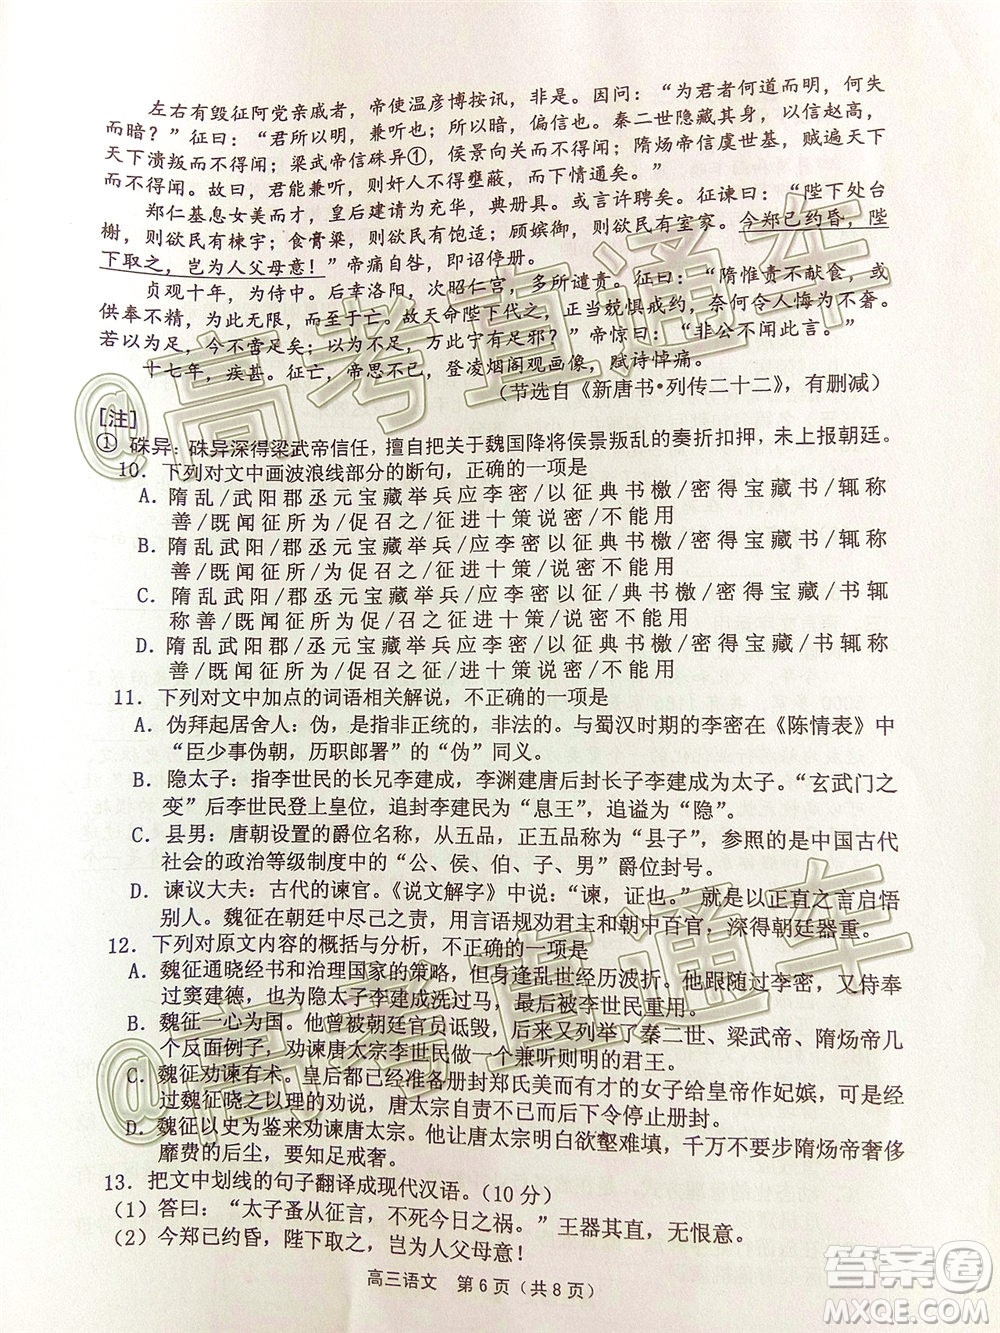 左右有毁征阿党亲戚者，帝使温彦博按讯，非是。因问：“为君者何道而明，何失
而暗？”征曰：“君所以明，兼听也；所以暗，偏信也。秦二世隐藏其身，以信赵高，
天下溃叛而不得闻；梁武帝信硃异①，侯景向关而不得闻；隋炀帝信虞世基，贼遍天下
而不得闻。故曰，君能兼听，则奸人不得壅蔽，而下情通矣。”
郑仁基息女美而才，皇后建请为充华，典册具。或言许聘矣。征谏曰：“陛下处台
榭，则欲民有栋宇；食膏粱，则欲民有饱适；顾嫔御，则欲民有室家。今郑已约昏，陛
下取之，岂为人父母意！”帝痛自咎，即诏停册。
贞观十年，为侍中。后幸洛阳，次昭仁宫，多所谴责。征曰：“隋惟责不献食，或
供奉不精，为此无限，而至于亡。故天命陛下代之，正当兢惧戒约，奈何令人悔为不奢。
若以为足，今不啻足矣；以为不足，万此宁有足邪？”帝惊曰：“非公不闻此言。”
十七年，疾甚。征亡，帝思不已，登凌烟阁观画像，赋诗悼痛。
（节选自《新唐书·列传二十二》，有删减）
[注]
① 硃异：硃异深得梁武帝信任，擅自把关于魏国降将侯景叛乱的奏折扣押，未上报朝廷。
10．下列对文中画波浪线部分的断句，正确的一项是
A．隋乱/武阳郡丞元宝藏举兵应李密/以征典书檄/密得宝藏书/辄称
善/既闻征所为/促召之/征进十策说密/不能用
B．隋乱武阳/郡丞元宝藏举兵/应李密以征典书檄/密得宝藏书/辄称
善/既闻征所为/促召之/征进十策说密/不能用
C．隋乱武阳/郡丞元宝藏举兵/应李密/以征典书檄/密得宝藏书/辄
称善/既闻征所为/促召之/征进十策/说密不能用
D．隋乱/武阳郡丞元宝藏举兵应李密/以征典书檄/密得宝藏书/辄称
善/既闻征/所为促召之/征进十策说密/不能用
11．下列对文中加点的词语相关解说，不正确的一项是
A．伪拜起居舍人：伪，是指非正统的，非法的。与蜀汉时期的李密在《陈情表》中
“臣少事伪朝，历职郎署”的“伪”同义。
B．隐太子：指李世民的长兄李建成，李渊建唐后封长子李建成为太子。“玄武门之
变”后李世民登上皇位，追封李建民为“息王”，追谥为“隐”。
C．县男：唐朝设置的爵位名称，从五品，正五品称为“县子”，参照的是中国古代
社会的政治等级制度中的“公、侯、伯、子、男”爵位封号。
D．谏议大夫：古代的谏官。《说文解字》中说：“谏，证也。”就是以正直之言启悟
别人。魏征在朝廷中尽己之责，用言语规劝君主和朝中百官，深得朝廷器重。
12．下列对原文内容的概括与分析，不正确的一项是
A．魏征通晓经书和治理国家的策略，但身逢乱世经历波折。他跟随过李密，又侍奉
过窦建德，也为隐太子李建成洗过马，最后被李世民重用。
B．魏征一心为国。他曾被朝廷官员诋毁，后来又列举了秦二世、梁武帝、隋炀帝几
个反面例子，劝谏唐太宗李世民做一个兼听则明的君王。
C．魏征劝谏有术。皇后都已经准备册封郑氏美而有才的女子给皇帝作妃嫔，但是经
过魏征晓之以理的劝说，唐太宗自责不已并下令停止册封。
D．魏征以史为鉴来劝谏唐太宗。他让唐太宗明白欲壑难填，千万不要步隋炀帝奢侈
靡费的后尘，要知足戒奢。
13．把文中划线的句子翻译成现代汉语。（10分）
（1）答曰：“太子蚤从征言，不死今日之祸。”王器其直，无恨意。
（2）今郑已约昏，陛下取之，岂为人父母意！
高三语文 第6页（共8页）
@高考直通车
@高考直通车
答案圈
MXQE.COM